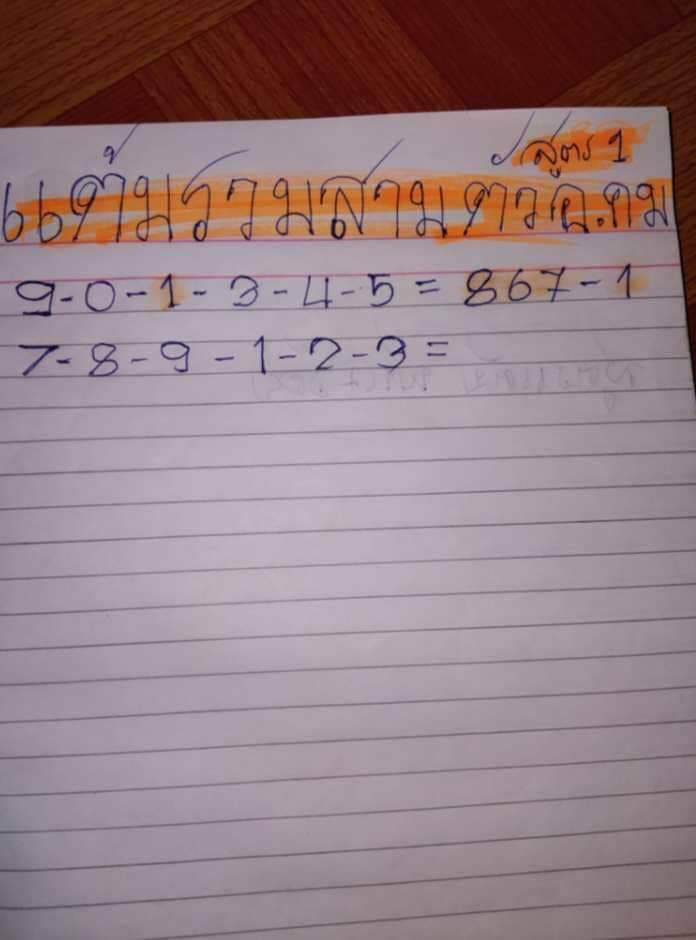 สูตร 1
แต้มรวมสามตัวฉ.คม
9-0-1-3-4-5=867-1
7-8-9-1-2-3=